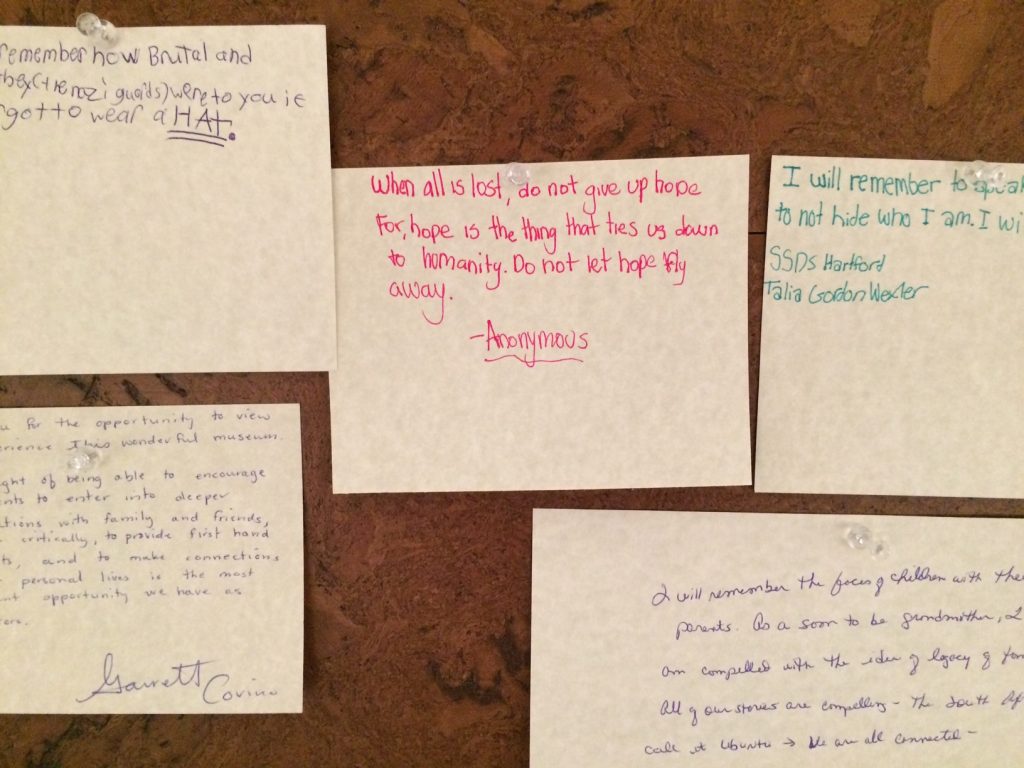 remember how Brutal and
they (the nazi guards) were to you ie
got to wear a HAt.
When all is lost, do not give up hope
For, hope is the thing that ties us down
to humanity. Do not let hope fly
away.
-Anonymous
I will remember to speak
to not hide who I am. I wi
SSDS Hartford
Talia Gordon Wexler
u for the opportunity to view
erience this wonderful museum.
ght of being able to encourage
nts to enter into deeper
ations with family and friends,
critically, to provide first hand
ts, and to make connections
personal lives is the most
nt opportunity we have as
ers.
Garrett Covino
I will remember the faces of children with their
parents. As a soon to be grandmother, I
am compelled with the idea of legacy of
All of our stories are compelling - The South Af
call it Ubuntu → We are all connected -